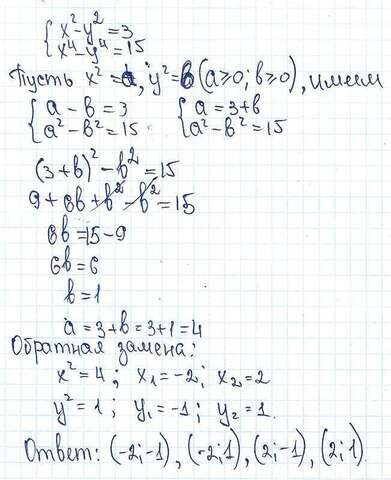 {x² - y² = 3
{x⁴ - y⁴ = 15
Пусть x² = a, y² = b (a ≥ 0; b ≥ 0), имеем
{a - b = 3 {a = 3 + b
{a² - b² = 15 {a² - b² = 15
(3 + b)² - b² = 15
9 + 6b + b² - b² = 15
6b = 15 - 9
6b = 6
b = 1
a = 3 + b = 3 + 1 = 4
Обратная замена:
x² = 4; x₁ = -2; x₂ = 2
y² = 1; y₁ = -1; y₂ = 1.
Ответ: (-2; -1), (-2; 1), (2; -1), (2; 1).